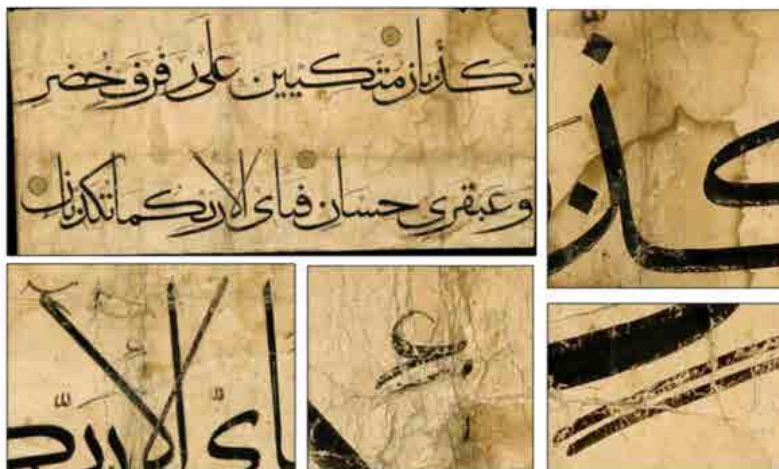 تكذبان متكيين على رفرف خضر
وعبقري حسان فباى الاء ربكما تكذبان